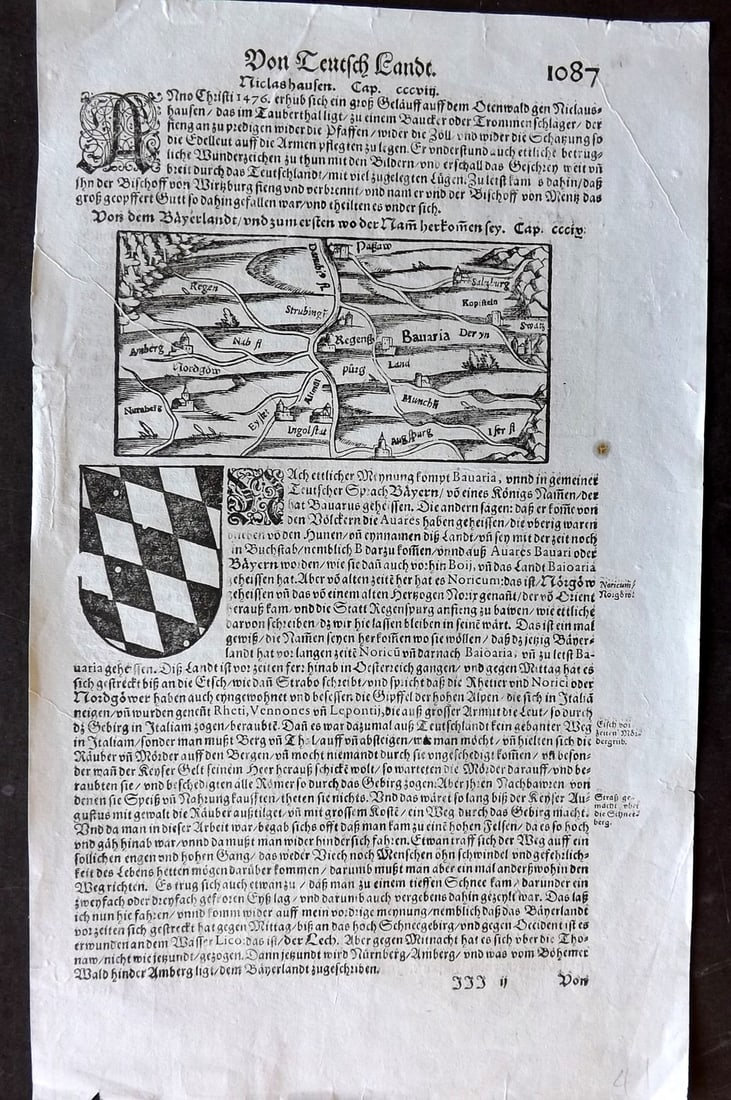 Von Teutsch Landt. 1087
Niclashausen. Cap. cccviij.
ANno Christi 1476. erhub sich ein groß Geläuff auff dem Otenwald gen Niclaus-
hausen/das im Tauberthal ligt/zu einem Baucker oder Trommenschlager/der
fieng an zu predigen wider die Pfaffen/wider die Zöll vnd wider die Schatzung so
die Edelleut auff die Armen pflegten zu legen. Er vnderstund auch ettliche betrug-
liche Wunderzeichen zu thun mit den Bildern/vnd erschall das Geschrey weit vñ
breit durch das Teutschlandt/mit viel zugelegten Lügen. Zu letst kam es dahin/daß
jhn der Bischoff von Wirtzburg fieng vnd verbrennt/vnd nam er vnd der Bischoff von Mentz das
groß geopffert Gutt so dahin gefallen war/vnd theilten es vnder sich.
Von dem Bäyerlandt/vnd zum ersten wo der Nam̃ herkom̃en sey. Cap. cccix.
Danubiꝰ fl
Passaw
Regen
Saltzburg
Strubing
Kopistein
Swatz
Amberg
Nab fl
Regenß
purg
Bauaria
Der yn
Nordgöw
Land
Nurnberg
Eystet
Altmül
Ingolstat
Münchẽ
Augspurg
Iser fl
NAch ettlicher Meynung kompt Bauaria, vnnd in gemeiner
Teutscher Sprach Bäyern/võ eines Königs Nam̃en/der
hat Bauarus geheissen. Die andern sagen: daß er kom̃e von
den Völckern die Auares haben geheissen/die vberig waren
blieben võ den Hunen/vñ eynnamen diß Landt/vñ sey mit der zeit noch
in Buchstab/nemblich B darzu kom̃en/vnnd auß Auares Bauari oder
Bäyern worden/wie sie dañ auch vorhin Boij, vñ das Landt Baioaria
geheissen hat. Aber võ alten zeitẽ her hat es Noricum: das ist/Nörgöw
geheissen vñ das võ einem alten Hertzogen Norix genañt/der võ Orient
herauß kam/vnd die Statt Regenspurg anfieng zu bawen/wie ettliche
darvon schreiben/dz wir hie lassen bleiben in seinẽ wärt. Das ist ein mal
gewiß/die Namẽ seyen herkom̃en wo sie wöllen/daß dz jetzig Bäyer-
landt hat vor langen zeitẽ Noricũ vñ darnach Baioaria, vñ zu letst Ba-
uaria geheissen. Diß Landt ist vor zeiten ferr hinab in Oesterreich gangen/vnd gegen Mittag hat es
sich gestreckt biß an die Etsch/wie dañ Strabo schreibt/vnd spricht daß die Rhetier vnd Norici oder
Nordgöwer haben auch eyngewohnet vnd besessen die Gipffel der hohen Alpen/die sich in Italiã
neigen/vñ wurden geneñt Rheti, Vennones vñ Lepontij, die auß grosser Armut die Leut/so durch
dz Gebirg in Italiam zogen/beraubtẽ. Dañ es war dazumal auß Teutschlandt kein gebanter Weg
in Italiam/sonder man mußt Berg vñ Thal/auff vñ absteigen/wo man möcht/vñ hielten sich die
Räuber vñ Mörder auff den Bergen/vñ mocht niemandt durch sie vngeschedigt kom̃en/vñ beson-
der wañ der Keyser Gelt seinem Heer herauß schickẽ wolt/so warteten die Mörder darauff/vnd be-
raubten sie/vnd beschedigten alle Römer so durch das Gebirg zogen: Aber jhren Nachbawren von
denen sie Speiß vñ Nahrung kaufften/theten sie nichts. Vnd das wäret so lang biß der Keyser Au-
gustus mit gewalt die Räuber außtilget/vñ mit grossem Kostẽ/ein Weg durch das Gebirg macht.
Vnd da man in dieser Arbeit war/begab sichs offt daß man kam zu einẽ hohen Felsen/da es so hoch
vnd gäh hinab war/vnnd da mußt man wider hinder sich fahren. Etwan traff sich der Weg auff ein
sollichen engen vnd hohen Gang/das weder Viech noch Menschen ohn schwindel vnd gefehrlich-
keit des Lebens hetten mögen darüber kommen/darumb mußt man aber ein mal anderßwo hin den
Weg richten. Es trug sich auch etwan zu/daß man zu einem tieffen Schnee kam/darunder ein
zweyfach oder dreyfach gefroren Eyß lag/vnd darumb auch vergebens dahin gezylt war. Das laß
ich nun hie fahren/vnnd komm wider auff mein vordrige meynung/nemblich daß das Bäyerlandt
vor zeiten sich gestreckt hat gegen Mittag/biß an das hoch Schneegebirg/vnd gegen Occident ist es
erwunden an dem Wasser Lico: das ist/der Lech. Aber gegen Mitnacht hat es sich vber die Tho-
naw/nicht wie jetzundt/gezogen. Dann jetzundt wird Nürnberg/Amberg/vnd was vom Böhemer
Wald hinder Amberg ligt/dem Bäyerlandt zugeschriben.
Noricum/
Norgöw.
Etsch vor
zeiten Mör-
dergrub.
Straß ge-
macht vber
die Schnee-
berg.
JJJ ij Von